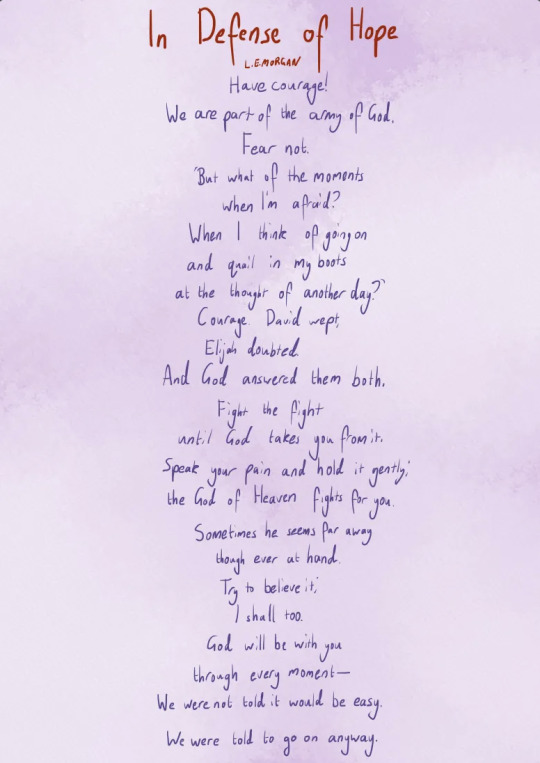 In Defense of Hope
L.E.MORGAN
Have courage!
We are part of the army of God.
Fear not.
"But what of the moments
when I'm afraid?
When I think of going on
and quail in my boots
at the thought of another day?"
Courage. David wept,
Elijah doubted.
And God answered them both.
Fight the fight
until God takes you from it.
Speak your pain and hold it gently;
the God of Heaven fights for you.
Sometimes he seems far away
though ever at hand.
Try to believe it;
I shall too.
God will be with you
through every moment—
We were not told it would be easy.
We were told to go on anyway.